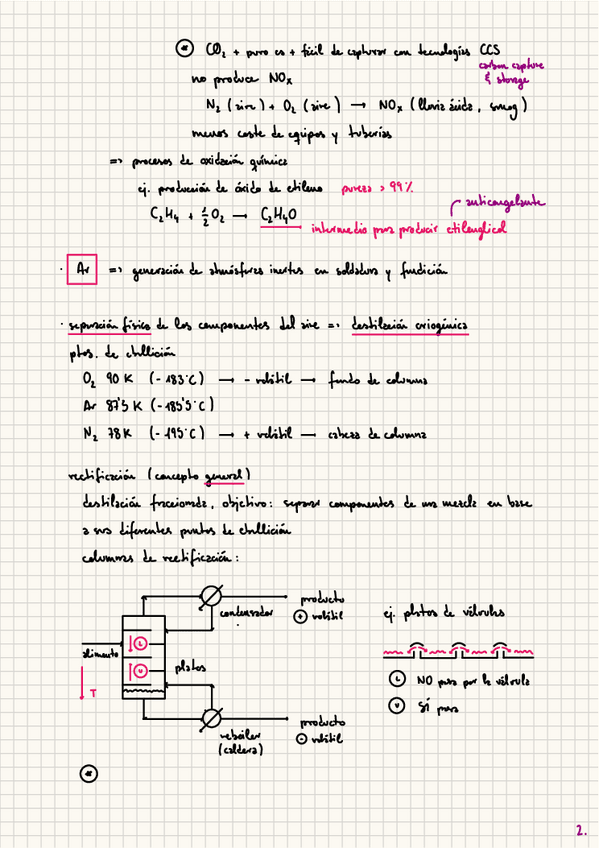 * CO₂ + puro es + fácil de capturar con tecnologías CCS
carbon capture
& storage
no produce NOx
N₂ (aire) + O₂ (aire) → NOx (lluvia ácida, smog)
menos coste de equipos y tuberías
=> procesos de oxidación química
ej. producción de óxido de etileno pureza > 99%
anticongelante
C₂H₄ + 1/2 O₂ → C₂H₄O
intermedio para producir etilenglicol
· Ar => generación de atmósferas inertes en soldadura y fundición
· separación física de los componentes del aire => destilación criogénica
ptos. de ebullición
O₂ 90 K (-183°C) → - volátil → fondo de columna
Ar 87'5 K (-185'5°C)
N₂ 78K (-195°C) → + volátil → cabeza de columna
rectificación (concepto general)
destilación fraccionada, objetivo: separar componentes de una mezcla en base
a sus diferentes puntos de ebullición
columnas de rectificación:
producto
+ volátil
condensador
ej. platos de válvulas
L
alimento
V
platos
T
L NO pasa por la válvula
V SÍ pasa
producto
- volátil
reboiler
(caldera)
*
2.